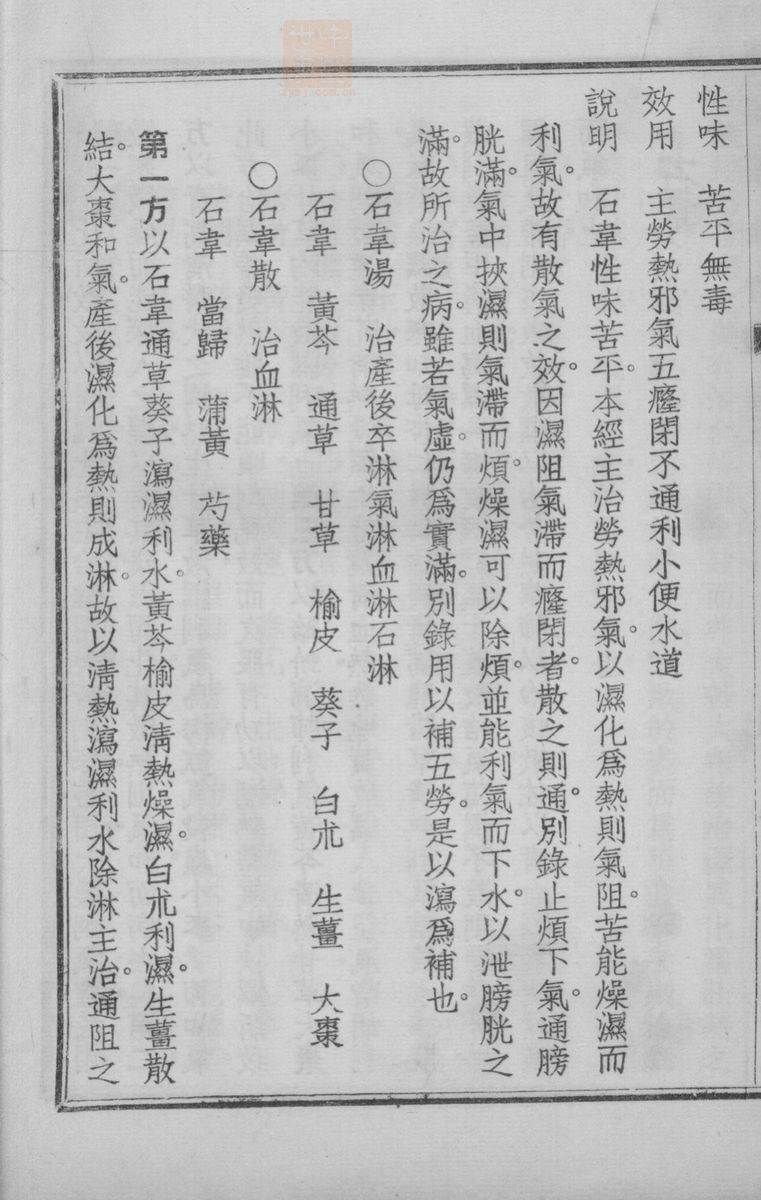 性味　苦平無毒
效用　主勞熱邪氣五癃閉不通利小便水道
說明　石韋性味苦平。本經主治勞熱邪氣。以濕化爲熱則氣阻。苦能燥濕而
利氣。故有散氣之效。因濕阻氣滯而癃閉。者散之則通。別錄止煩下氣。通膀
胱滿。氣中挾濕則氣滯而煩。燥濕可以除煩。並能利氣而下水。以泄膀胱之
滿。故所治之病。雖若氣虛。仍爲實滿。別錄用以補五勞。是以瀉爲補也。
○石韋湯　治產後卒淋氣淋血淋石淋
石韋　黃芩　通草　甘草　榆皮　葵子　白朮　生薑　大棗
○石韋散　治血淋
石韋　當歸　蒲黃　芍藥
第一方以石韋通草葵子瀉濕利水。黃芩榆皮清熱燥濕。白朮利濕。生薑散
結。大棗和氣。產後濕化爲熱則成淋。故以清熱瀉濕利水除淋主治。通阻之